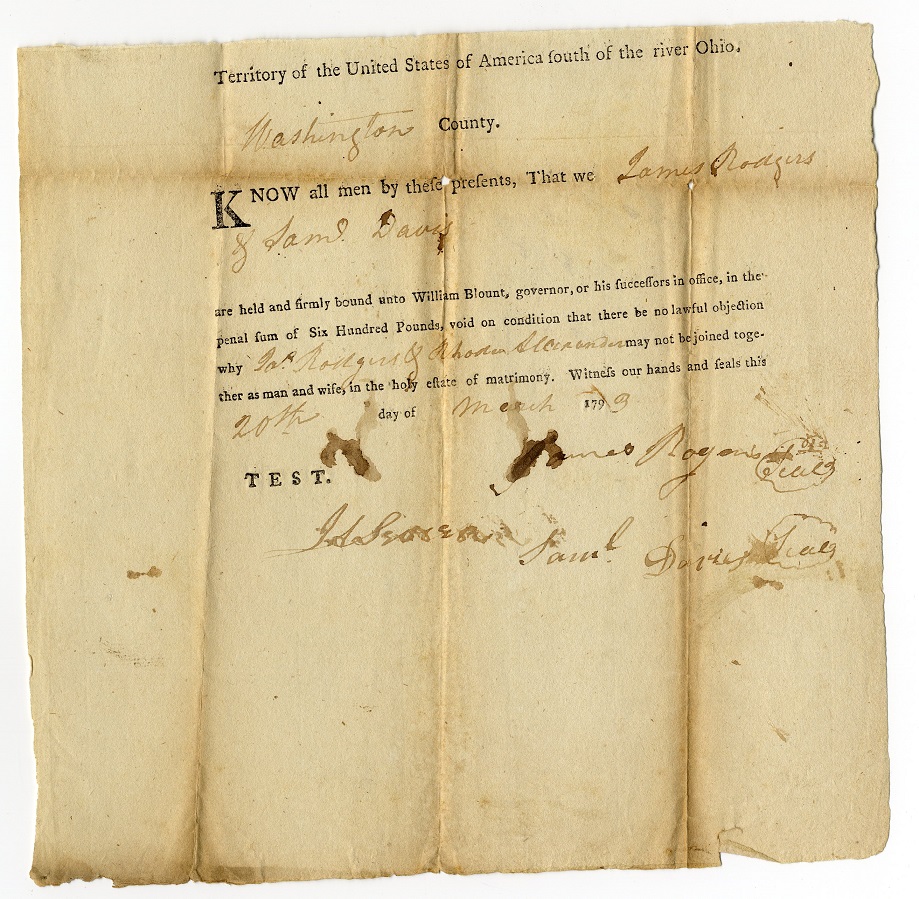 Territory of the United States of America ſouth of the river Ohio.
Washington County.
KNOW all men by theſe preſents, That we James Rodgers
& Saml. Davis
are held and firmly bound unto William Blount, governor, or his ſucceſſors in office, in the
penal ſum of Six Hundred Pounds, void on condition that there be no lawful objection
why Jas. Rodgers & Rhoda Alexander may not be joined toge-
ther as man and wife, in the holy eſtate of matrimony. Witneſs our hands and ſeals this
20th day of March 1793
James Rogers Seal
TEST.
Saml. Davies Seal